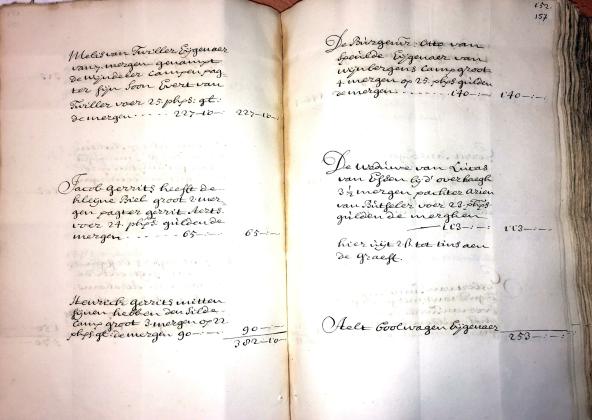 Melis van Twiller Eijgenaer
van 7 mergen genaempt
de wijndeler campen pag-
ter sijn soon Evert van
Twiller voer 25 phps: gl:
de mergen ---- 227-10- 227-10-
Jacob gerrits heeft de
kleijne Biel groot 2 mer-
gen pagter gerrit Aerts
voer 24 phps gulden de
mergen ---- 65-:- 65-:-
Henrick gerrits mitten
sijnen hebben den
camp groot 3 mergen op 22
phps gl: de mergen 90-:- 90-:-
382-10-
152
157
De Burgemr: Otto van
Speulde Eijgenaer van
wijnbergens camp groot
4 mergen op 25 phps gulden
de mergen ---- 140-:- 140-:-
De weduwe van Lucas
van Essen bij d' overhaegh
3½ mergen pachter Arien
van voer 23 phps
gulden de merghen
113-:- 113-:-
hier uijt tot tins aen
de Graeft.
Aelt Coolwagen Eijgenaer
253-:-